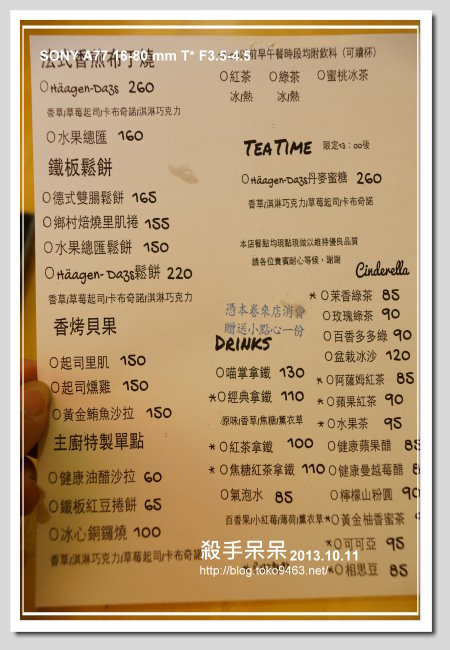 SONY A77 16-80 mm T* F3.5-4.5
法式香煎布丁燒
Häagen-Dazs 260
香草/草莓起司/卡布奇諾/淇淋巧克力
水果總匯 160
鐵板鬆餅
德式雙腸鬆餅 165
鄉村焙燒里肌捲 155
水果總匯鬆餅 150
Häagen-Dazs鬆餅 220
香草/淇淋巧克力/草莓起司/卡布奇諾
香烤貝果
起司里肌 150
起司燻雞 150
黃金鮪魚沙拉 150
主廚特製單點
健康油醋沙拉 60
鐵板紅豆捲餅 65
冰心銅鑼燒 100
香草/淇淋巧克力/草莓起司/卡布奇諾
前早午餐時段均附飲料（可續杯）
紅茶 綠茶 蜜桃冰茶
冰/熱 冰/熱
TEA TIME 限定13：00後
Häagen-Dazs丹麥蜜糖 260
香草/淇淋巧克力/草莓起司/卡布奇諾
本店餐點均現點現做以維持優良品質
請各位貴賓耐心等候，謝謝
憑本卷來店消費
贈送小點心一份
DRINKS
喵掌拿鐵 130
*經典拿鐵 110
原味/香草/焦糖/薰衣草
*紅茶拿鐵 100
*焦糖紅茶拿鐵 110
氣泡水 85
百香果/小紅莓/薄荷/薰衣草
Cinderella
*茉香綠茶 85
玫瑰綠茶 90
百香多多綠 90
盆栽冰沙 120
*阿薩姆紅茶 85
*蘋果紅茶 90
*水果茶 95
健康蘋果醋 8
健康蔓越莓醋 8
檸檬山粉圓 90
*黃金柚香蜜茶
*可可亞 95
*相思豆 85
殺手呆呆 2013.10.11
http://blog.toko9463.net/